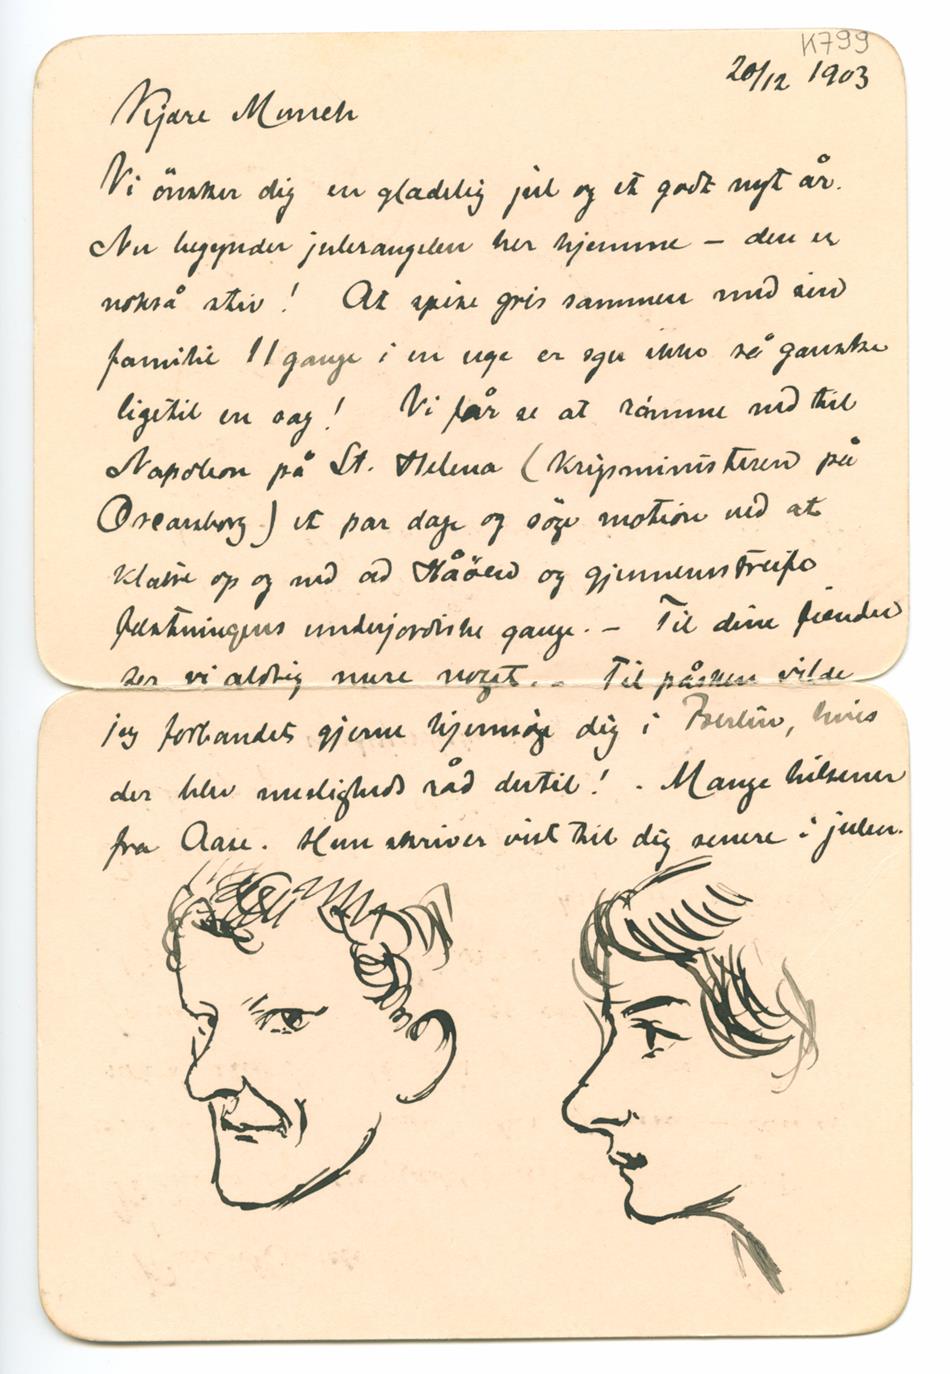 K799
20/12 1903
Kjære Munch
Vi önsker dig en glædelig jul og et godt nyt år.
Nu begynder julerangelen her hjemme – den er
nokså stiv! At spise gris sammen med sin
familie 11 gange i en uge er sgu ikke så ganske
ligetil en sag! Vi får se at römme ned til
Napoleon på St. Helena (krigsministeren på
Oscarsborg) et par dage og söge motion ved at
klatre op og ned ad Håöen og gjennemstreife
fæstningens underjordiske gange. – Til dine fiender
ser vi aldrig mere noget. – Til påsken vilde
jeg forbandet gjerne hjemsöge dig i Berlin, hvis
der blev muligheds råd dertil! – Mange hilsener
fra Aase. Hun skriver vist til dig senere i julen.